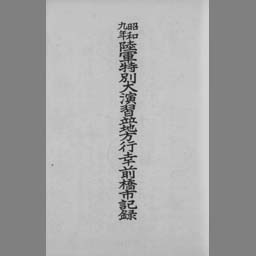 昭和九年陸軍特別大演習竝地方行幸前橋市記録